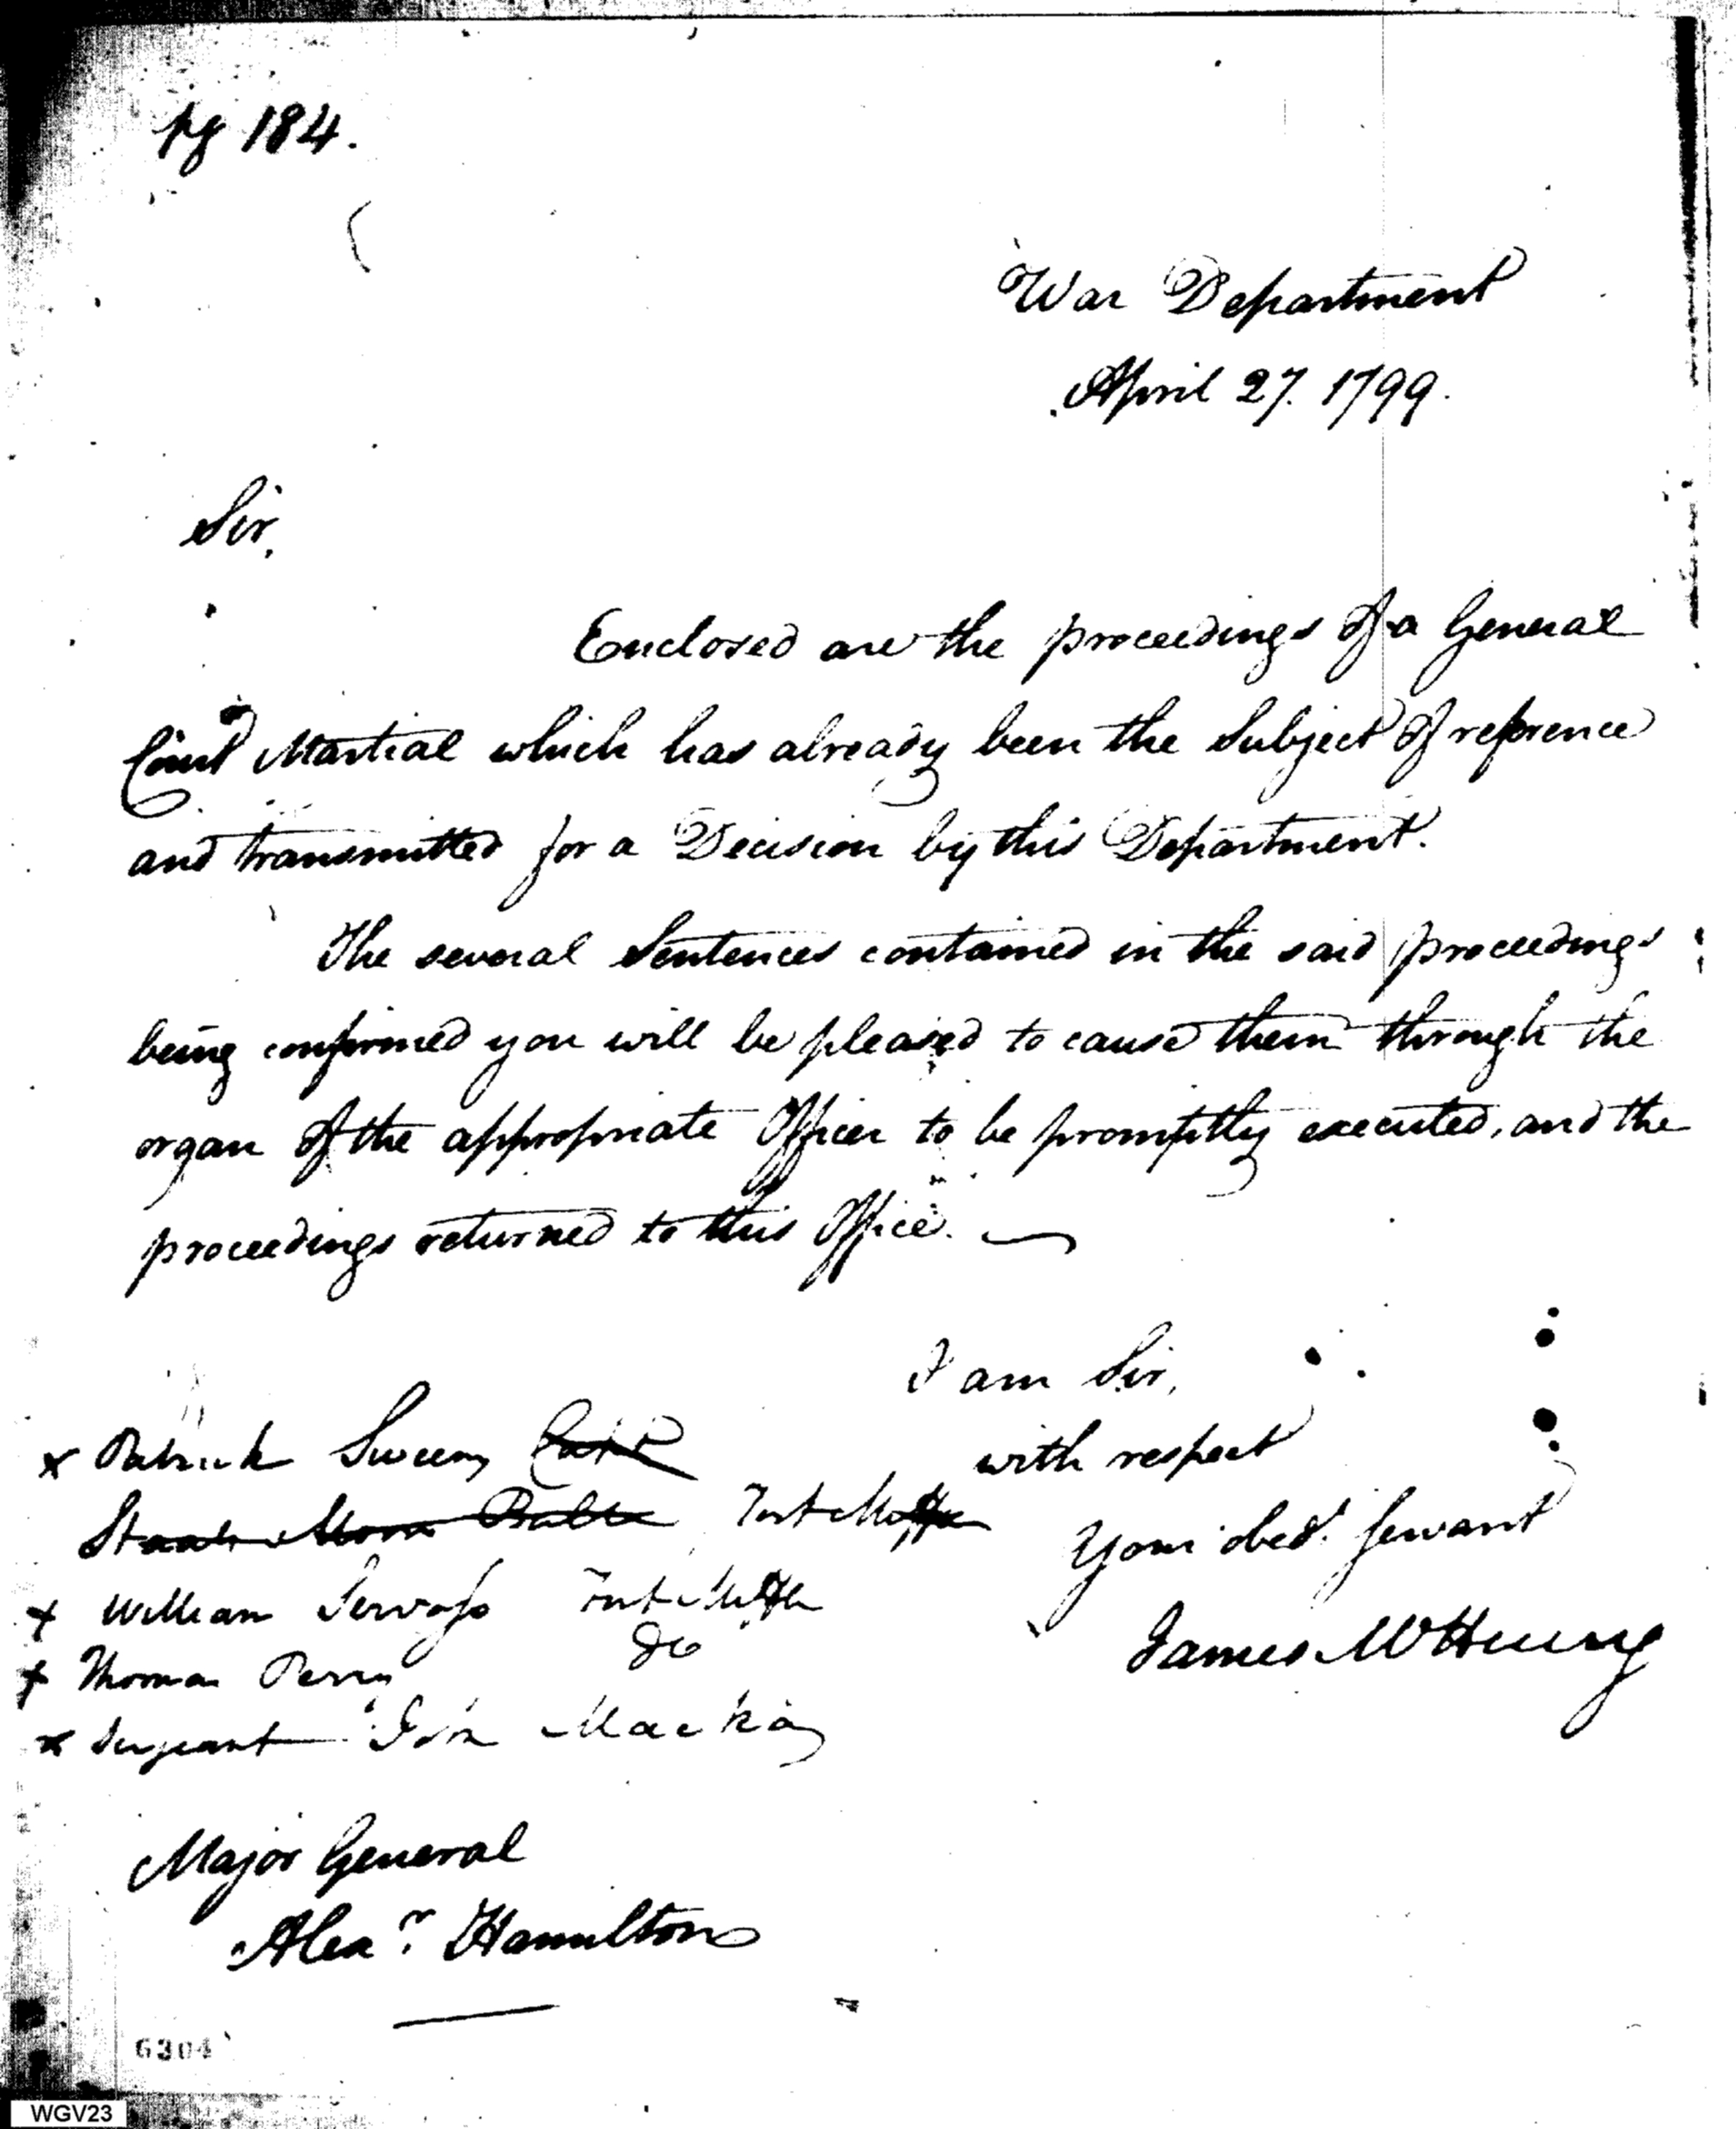 pg 184.
War Department
April 27. 1799.
Sir,
Enclosed are the proceedings of a General
Court Martial which has already been the Subject of reference
and transmitted for a Decision by this Department.
The several Sentences contained in the said proceedings
being confirmed you will be pleased to cause them through the
organ of the appropriate Officer to be promptly executed, and the
proceedings returned to this Office.
I am Sir,
with respect
Your obed. servant
James McHenry
x Patrick Sweeny
Fort
x William Servoss Fort
x Thomas Perry do
x Sergeant John Mackay
Major General
Alexr. Hamilton
6304
WGV23